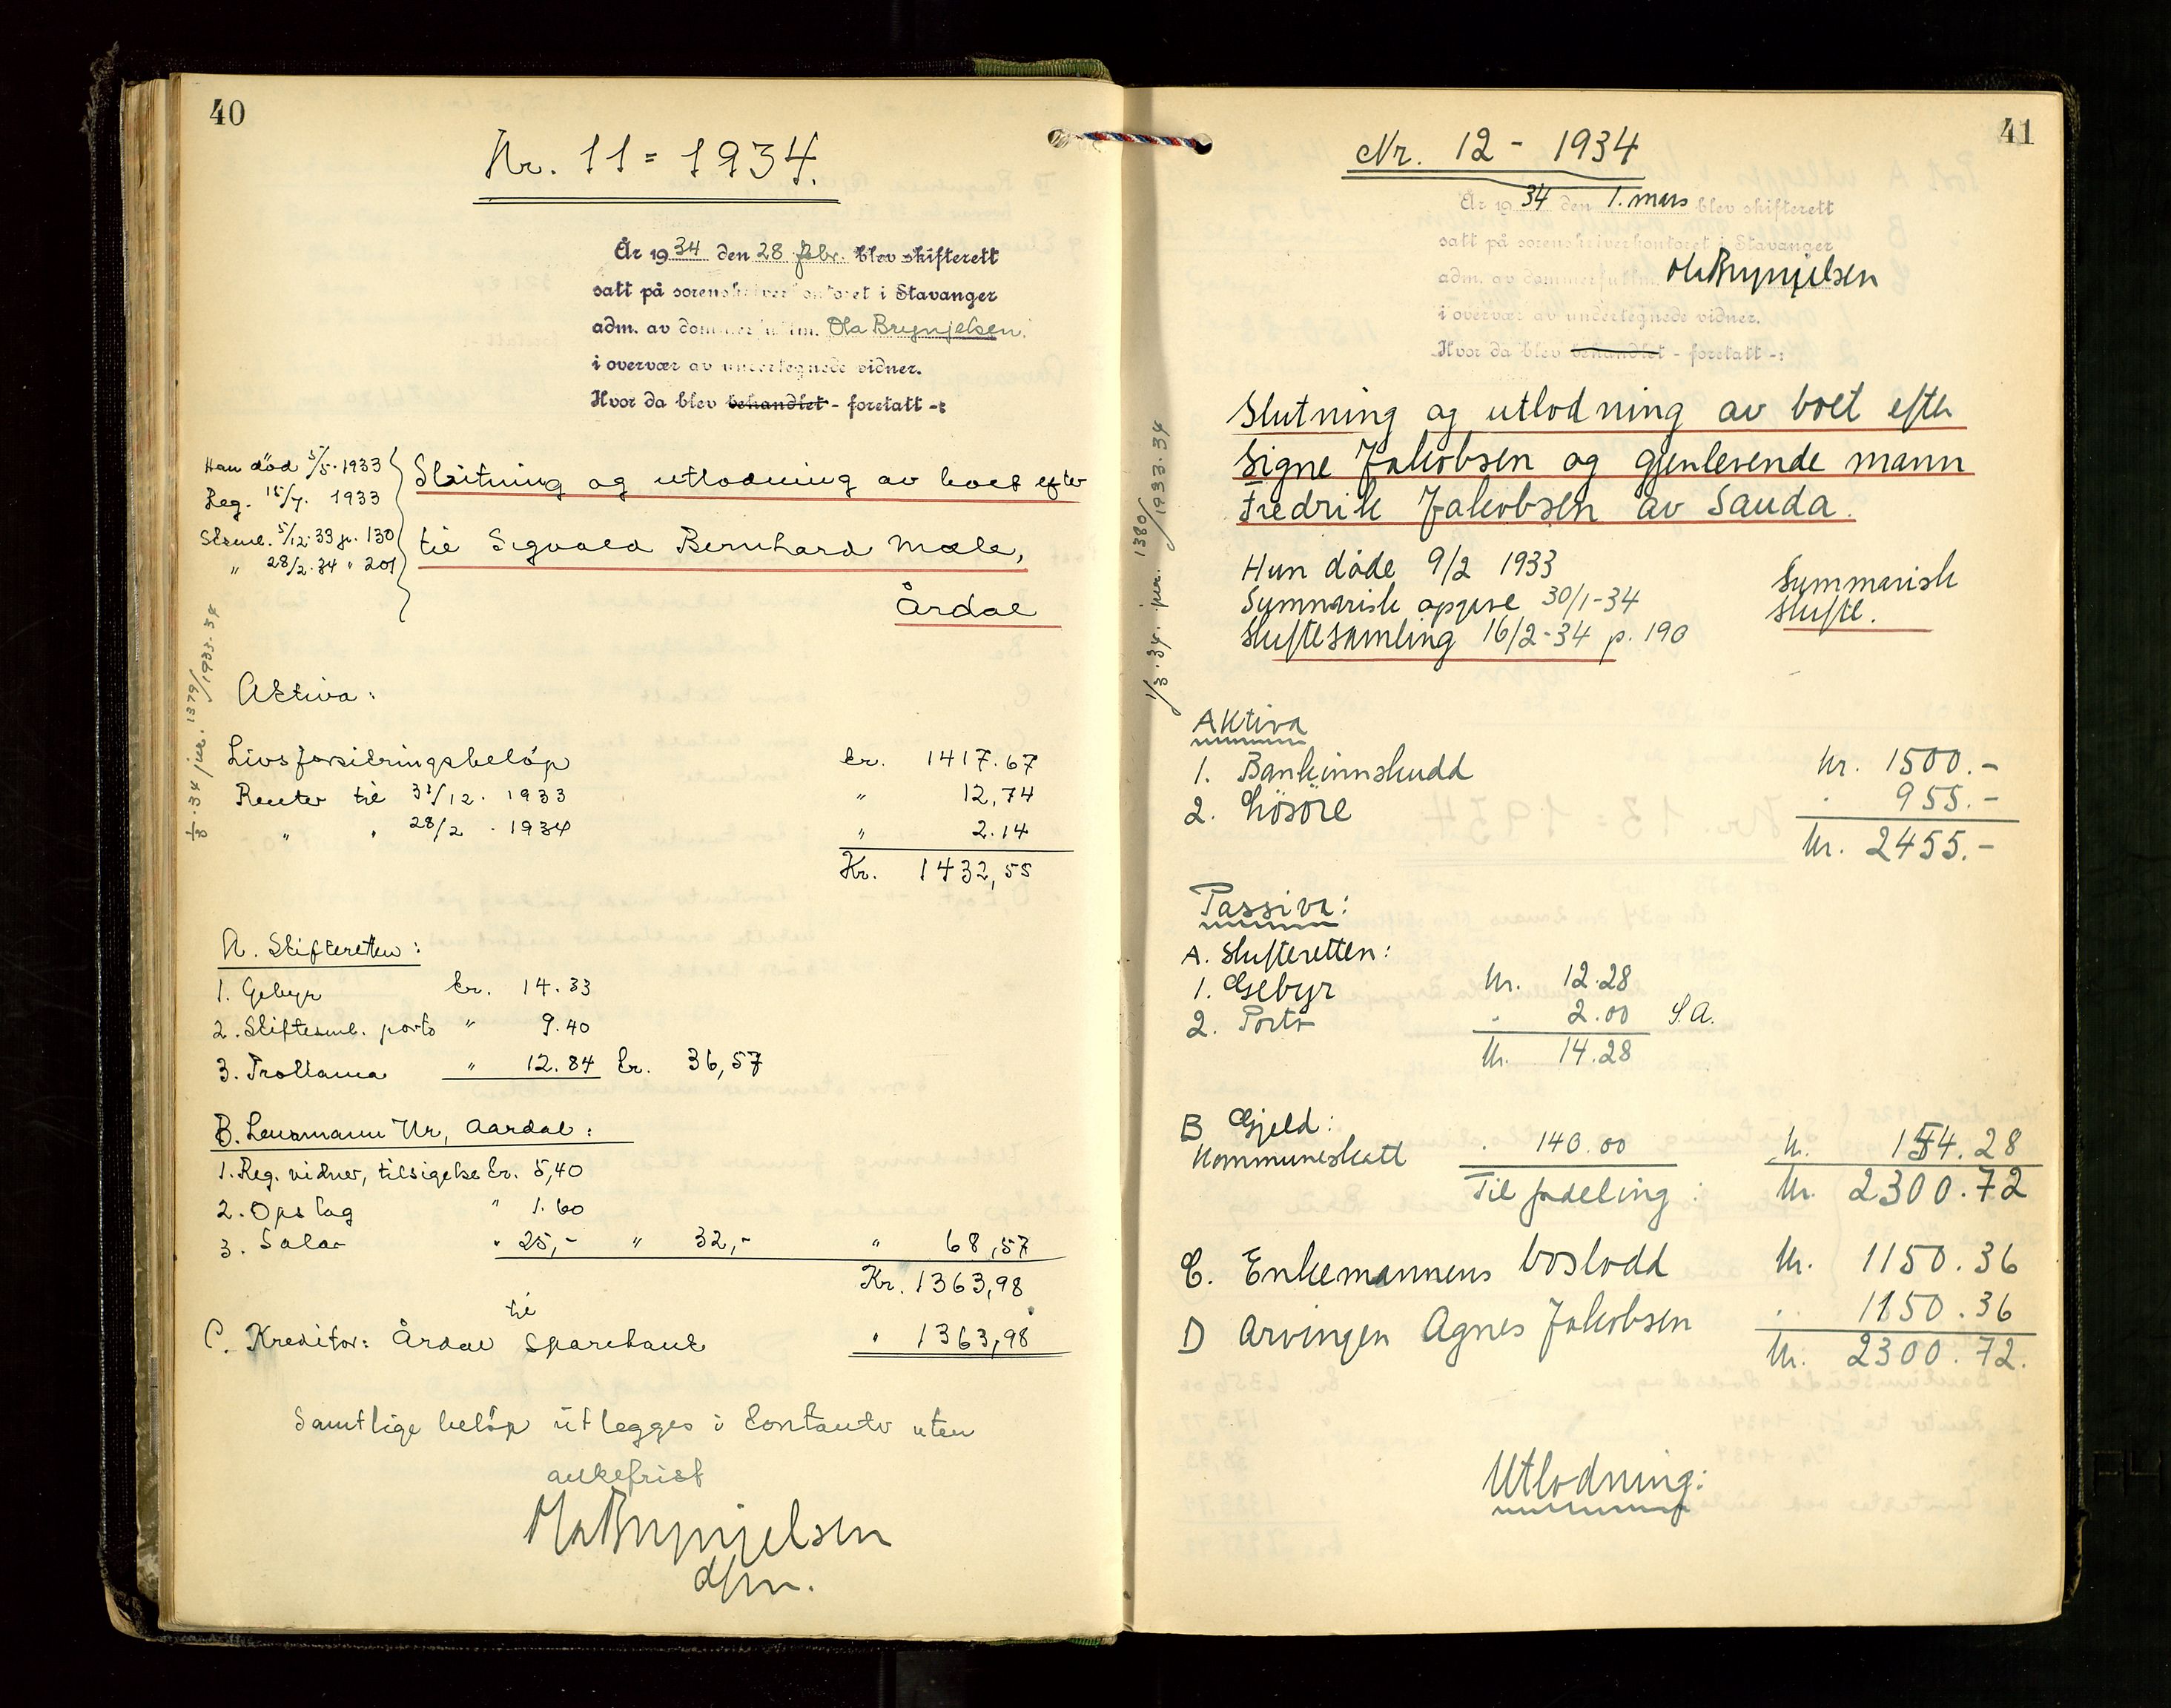 40
Nr. 11 = 1934.
År 1934 den 28 febr. blev skifterett
satt på sorenskriverkontoret i Stavanger
adm. av dommerfullm. Ola Brynjelsen.
i overvær av undertegnede vidner.
Hvor da blev behandlet - foretatt -:
Han död 5/5. 1933
Reg. 15/7. 1933
Sksml. 5/12. 33 p. 130
" 28/2. 34 " 201
Slutning og utlodning av boet efter
til Sigvald Bernhard Mæle,
Årdal
1/3. 34 jur. 1379/1933-34
Aktiva:
Livsforsikringsbeløp kr. 1417.67
Renter til 31/12. 1933 " 12,74
" " 28/2. 1934 " 2.14
Kr. 1432,55
A. Skifteretten:
1. Gebyr kr. 14.33
2. Skiftesml. porto " 9.40
3. Proklama " 12.84 kr. 36,57
B. Lensmann Hr, Aardal:
1. Reg. vidner, tilsigelse kr. 5,40
2. Opslag " 1.60
3. Salær " 25,- " 32,- " 68,57
Kr. 1363,98
til
C. Kreditor: Årdal Sparebank " 1363,98
Samtlige beløp utlegges i kontanter uten
ankefrist
Ola Brynjelsen
dfm.
41
Nr. 12 - 1934
År 1934 den 1. mars blev skifterett
satt på sorenskriverkontoret i Stavanger
adm. av dommerfullm. Ola Brynjelsen
i overvær av undertegnede vidner.
Hvor da blev behandlet - foretatt -:
1/3. 34. jur. 1380/1933-34
Slutning og utlodning av boet efter
Signe Jakobsen og gjenlevende mann
Fredrik Jakobsen av Sauda.
Hun døde 9/2 1933
Summarisk opgave 30/1-34
Skiftesamling 16/2-34 p. 190
Summarisk
skifte.
Aktiva
1. Bankinnskudd kr. 1500.-
2. Løsøre " 955.-
kr. 2455.-
Passiva:
A. Skifteretten:
1. Gebyr kr. 12.28
2. Porto " 2.00 S.A.
kr. 14.28
B Gjeld:
Kommuneskatt " 140.00 kr. 154.28
Til fordeling: kr. 2300.72
C. Enkemannens boslodd kr. 1150.36
D Arvingen Agnes Jakobsen " 1150.36
kr. 2300.72.
Utlodning: